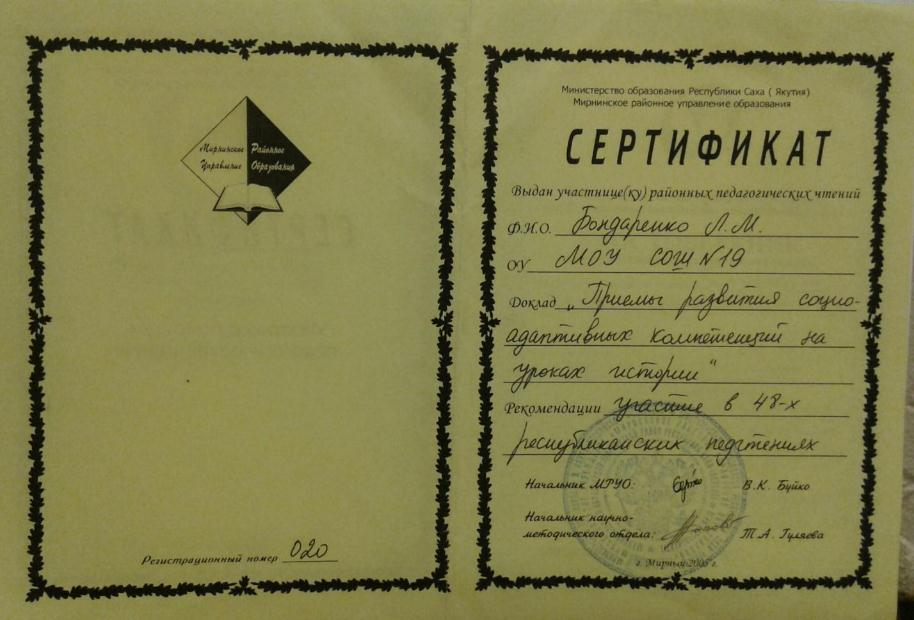 Мирнинское Районное
Управление Образования
Регистрационный номер 020
Министерство образования Республики Саха ( Якутия)
Мирнинское районное управление образования
СЕРТИФИКАТ
Выдан участнице(ку) районных педагогических чтений
Ф.И.О. Бондаренко Л.М.
ОУ МОУ СОШ №19
Доклад „Приемы развития социо-
адаптивных компетенций на
уроках истории"
Рекомендации участие в 48-х
республиканских педчтениях
Начальник МРУО: В.К. Буйко
Начальник научно-
методического отдела: Т.А. Гуляева
г. Мирный 2005 г.